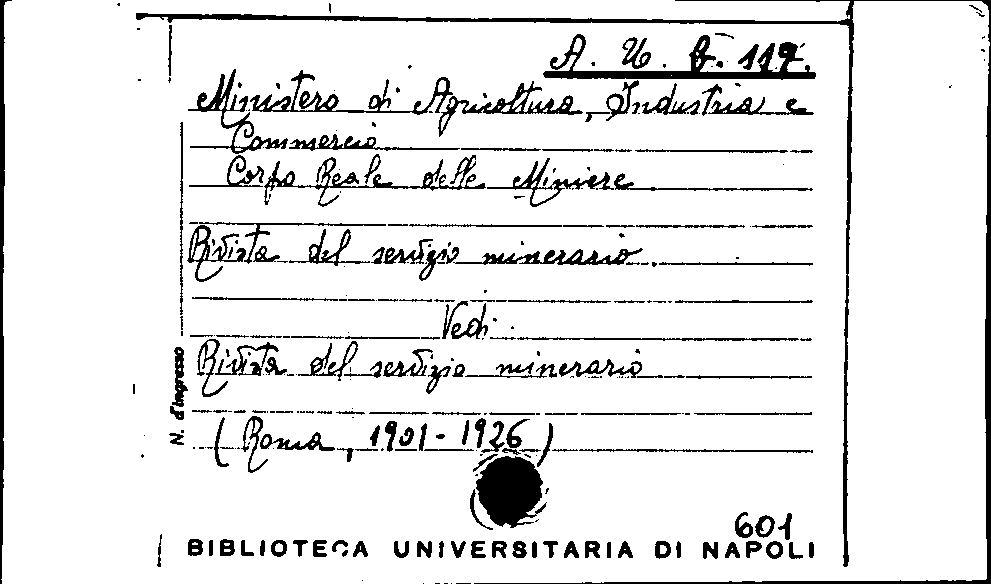 A. U. B. 117.
Ministero di Agricoltura, Industria e
Commercio
Corpo Reale delle Miniere
Rivista del servizio minerario.
Vedi
Rivista del servizio minerario
(Roma, 1901-1926)
N. d'Ingresso
601
BIBLIOTECA UNIVERSITARIA DI NAPOLI